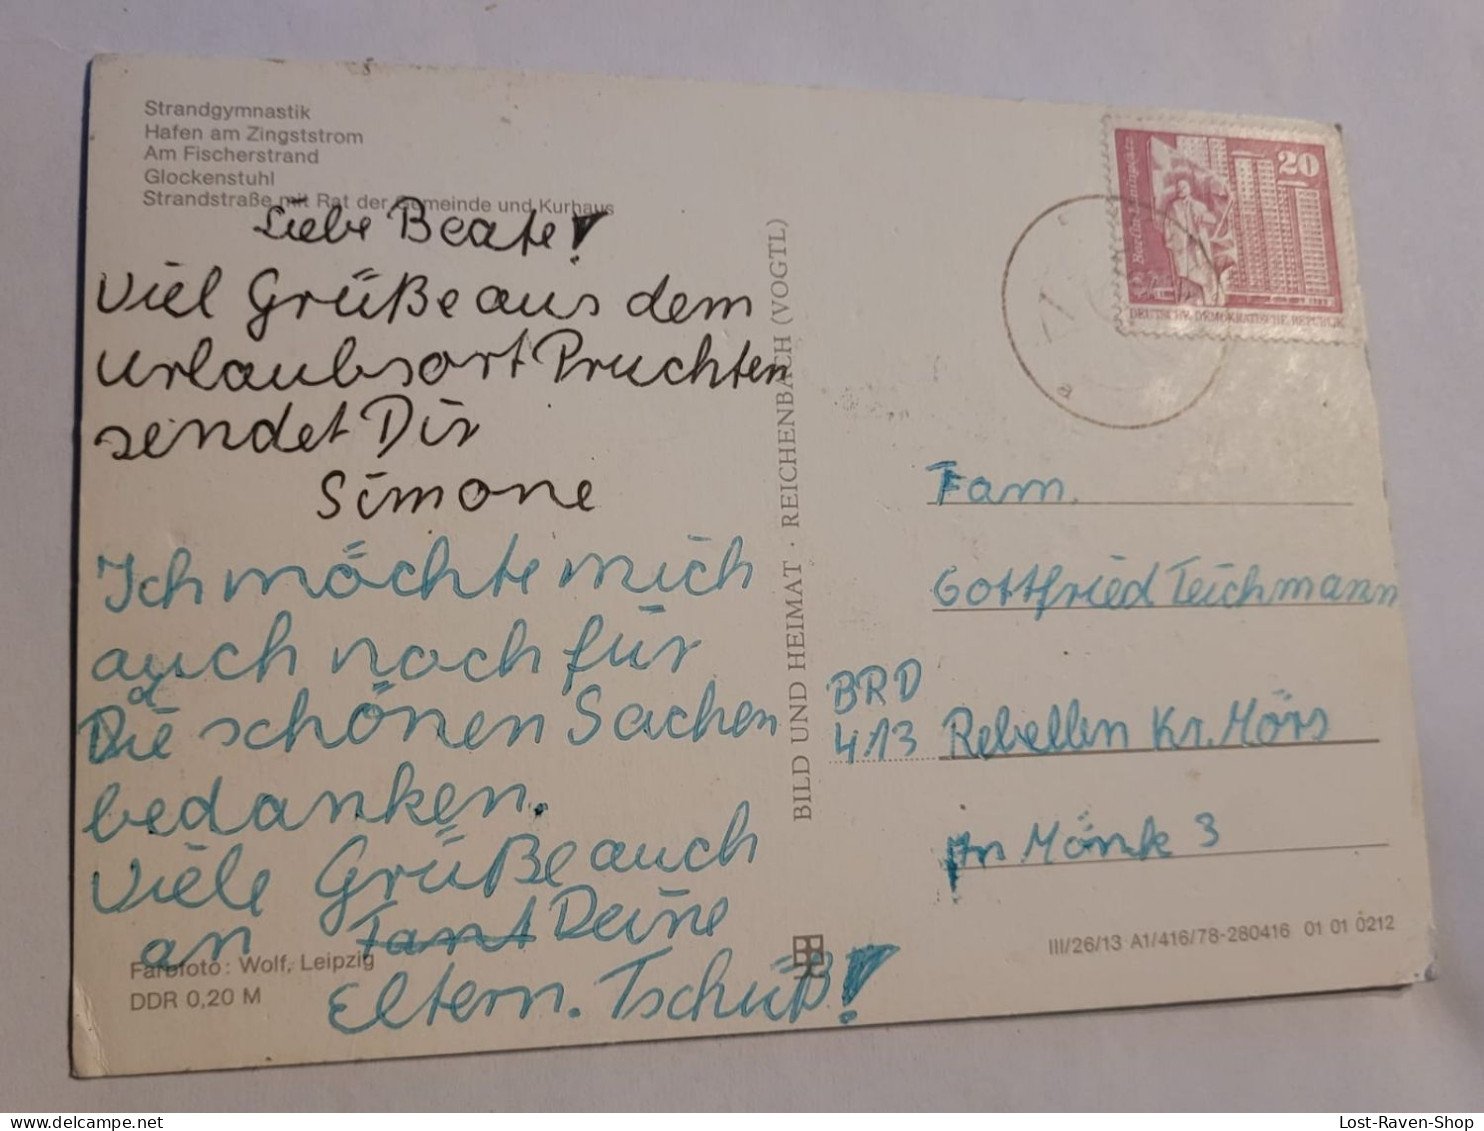 Strandgymnastik
Hafen am Zingststrom
Am Fischerstrand
Glockenstuhl
Strandstraße mit Rat der Gemeinde und Kurhaus
Liebe Beate!
Viel Grüße aus dem
Urlaubsort Pruchten
sendet Dir
Simone
Ich möchte mich
auch noch für
Die schönen Sachen
bedanken.
Viele Grüße auch
an Tant Deine
Eltern. Tschüß!
Farbfoto: Wolf, Leipzig
DDR 0,20 M
BILD UND HEIMAT · REICHENBACH (VOGTL)
20
DEUTSCHE DEMOKRATISCHE REPUBLIK
Fam.
Gottfried Teichmann
BRD
413 Rebellen Kr. Mörs
An Mönk 3
III/26/13 A1/416/78-280416 01 01 0212
Lost-Raven-Shop